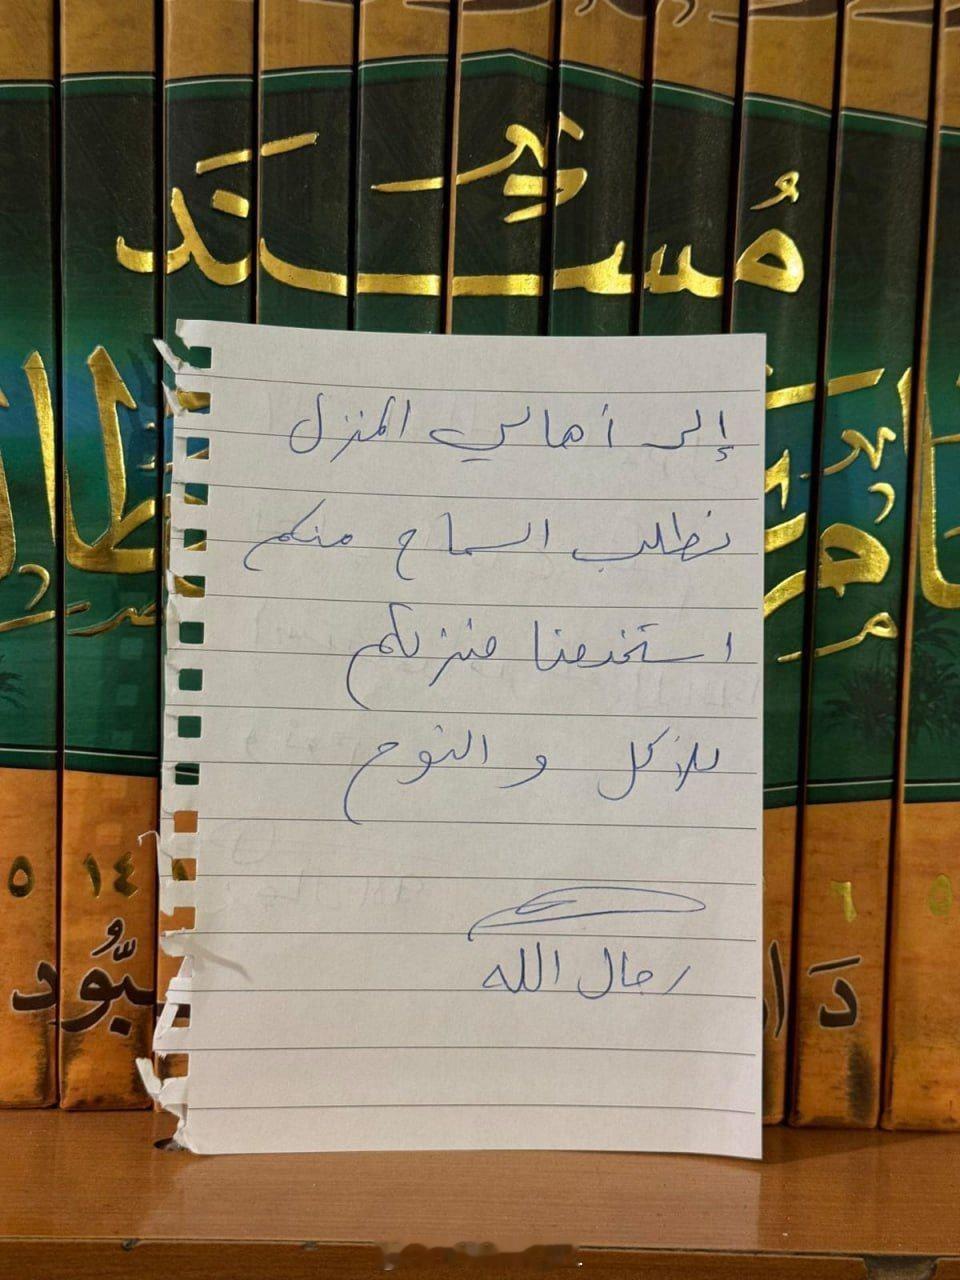 مُسْنَد
إلى أهالي المنزل
نطلب السماح منكم
استخدمنا منزلكم
للأكل و النوم
رجال الله
٥
١٤
٦
٥
دَار